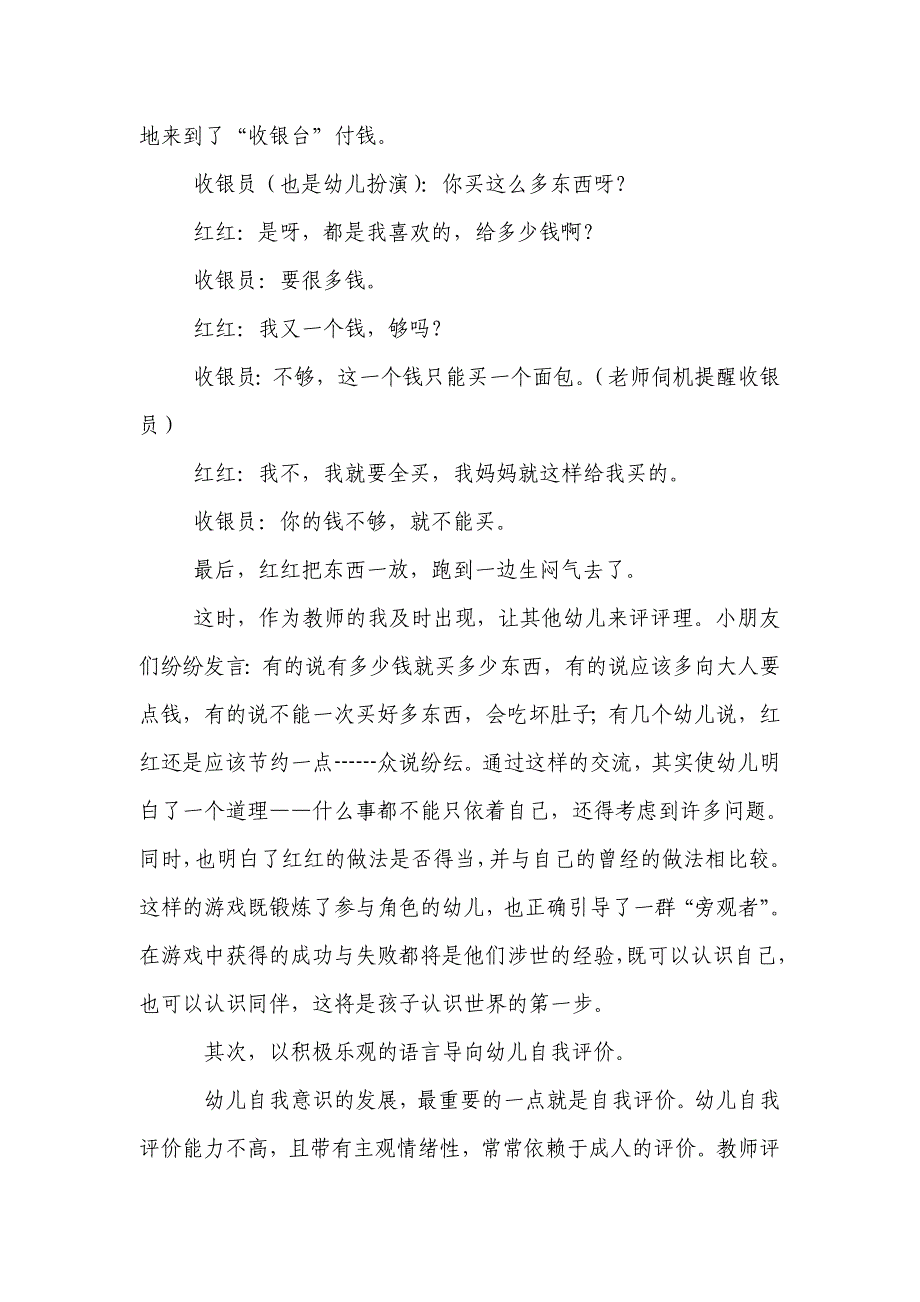 地来到了“收银台”付钱。
收银员（也是幼儿扮演）：你买这么多东西呀？
红红：是呀，都是我喜欢的，给多少钱啊？
收银员：要很多钱。
红红：我又一个钱，够吗？
收银员：不够，这一个钱只能买一个面包。（老师伺机提醒收银
员）
红红：我不，我就要全买，我妈妈就这样给我买的。
收银员：你的钱不够，就不能买。
最后，红红把东西一放，跑到一边生闷气去了。
这时，作为教师的我及时出现，让其他幼儿来评评理。小朋友
们纷纷发言：有的说有多少钱就买多少东西，有的说应该多向大人要
点钱，有的说不能一次买好多东西，会吃坏肚子；有几个幼儿说，红
红还是应该节约一点------众说纷纭。通过这样的交流，其实使幼儿明
白了一个道理——什么事都不能只依着自己，还得考虑到许多问题。
同时，也明白了红红的做法是否得当，并与自己的曾经的做法相比较。
这样的游戏既锻炼了参与角色的幼儿，也正确引导了一群“旁观者”。
在游戏中获得的成功与失败都将是他们涉世的经验，既可以认识自己，
也可以认识同伴，这将是孩子认识世界的第一步。
其次，以积极乐观的语言导向幼儿自我评价。
幼儿自我意识的发展，最重要的一点就是自我评价。幼儿自我
评价能力不高，且带有主观情绪性，常常依赖于成人的评价。教师评